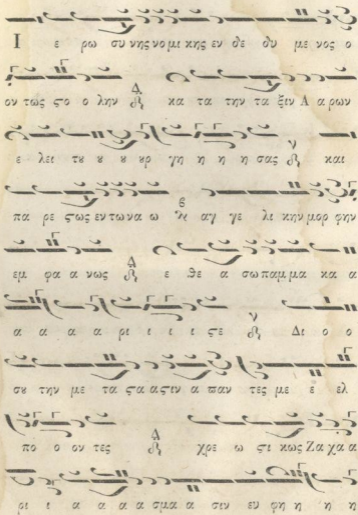 Ι ε ρω συ νης νο μι κης εν δε δυ με νος ο
ον τως ϛο ο λην Δ κα τα την τα ξιν Α α ρων
ε λει τȣ ȣ ȣ ȣρ γη η η η σας ν και
πα ρε ϛως εν τω να ω αγ γε λι κην μορ φην
εμ φα α νως Δ ε θε α σω παμ μα κα α
α α α α ρι ι ι ι ϛε ν Δι ο ο
σȣ την με τα ϛα α σιν α παν τες με ε ελ
πο ο ον τες Δ χρε ω ϛι κως Ζα χα α
ρι ι α α α α σμα α σιν ευ φη η η η